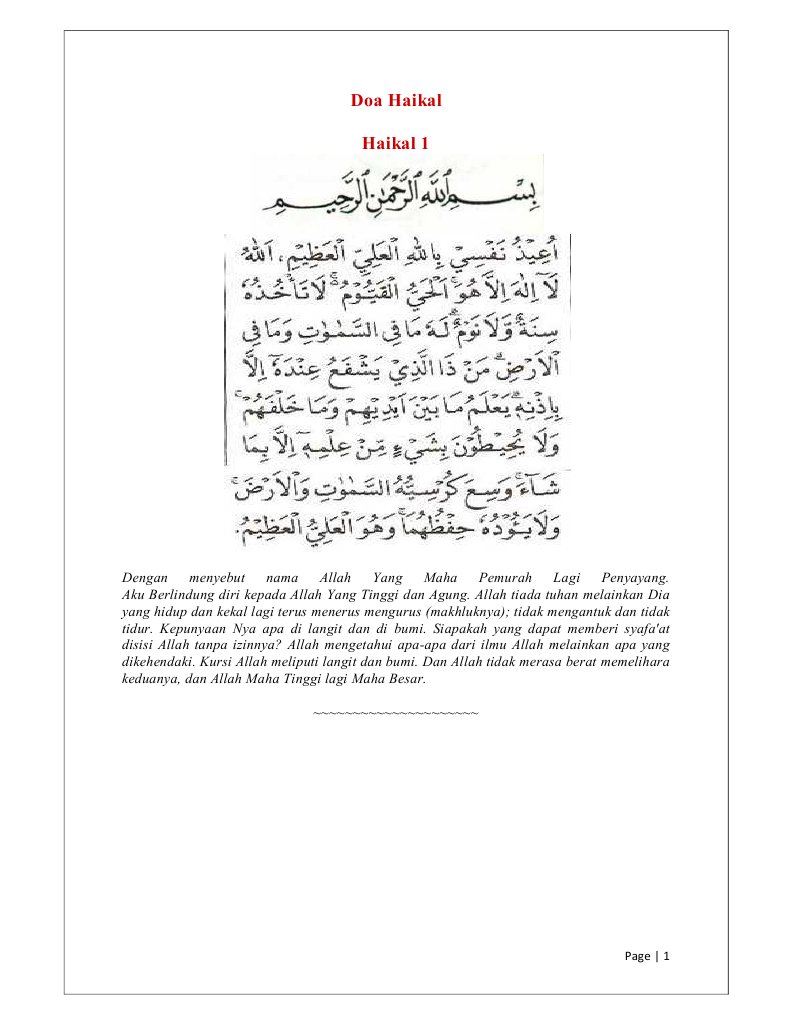 Doa Haikal
Haikal 1
بِسْمِ اللهِ الرَّحْمٰنِ الرَّحِيْمِ
اُعِيْذُ نَفْسِيْ بِاللهِ الْعَلِيِّ الْعَظِيْمِ، اَللهُ
لَآ اِلٰهَ اِلاَّ هُوَ ۚ اَلْحَيُّ الْقَيُّوْمُ ۚ لَا تَأْخُذُهٗ
سِنَةٌ وَّلَا نَوْمٌ ۗ لَهٗ مَا فِى السَّمٰوٰتِ وَمَا فِى
الْاَرْضِ ۗ مَنْ ذَا الَّذِيْ يَشْفَعُ عِنْدَهٗٓ اِلَّا
بِاِذْنِهٖ ۗ يَعْلَمُ مَا بَيْنَ اَيْدِيْهِمْ وَمَا خَلْفَهُمْ ۚ
وَلَا يُحِيْطُوْنَ بِشَيْءٍ مِّنْ عِلْمِهٖٓ اِلَّا بِمَا
شَآءَ ۚ وَسِعَ كُرْسِيُّهُ السَّمٰوٰتِ وَالْاَرْضَ ۚ
وَلَا يَـُٔوْدُهٗ حِفْظُهُمَا ۚ وَهُوَ الْعَلِيُّ الْعَظِيْمُ.
Dengan menyebut nama Allah Yang Maha Pemurah Lagi Penyayang.
Aku Berlindung diri kepada Allah Yang Tinggi dan Agung. Allah tiada tuhan melainkan Dia
yang hidup dan kekal lagi terus menerus mengurus (makhluknya); tidak mengantuk dan tidak
tidur. Kepunyaan Nya apa di langit dan di bumi. Siapakah yang dapat memberi syafa'at
disisi Allah tanpa izinnya? Allah mengetahui apa-apa dari ilmu Allah melainkan apa yang
dikehendaki. Kursi Allah meliputi langit dan bumi. Dan Allah tidak merasa berat memelihara
keduanya, dan Allah Maha Tinggi lagi Maha Besar.
~~~~~~~~~~~~~~~~~~~~~
Page | 1